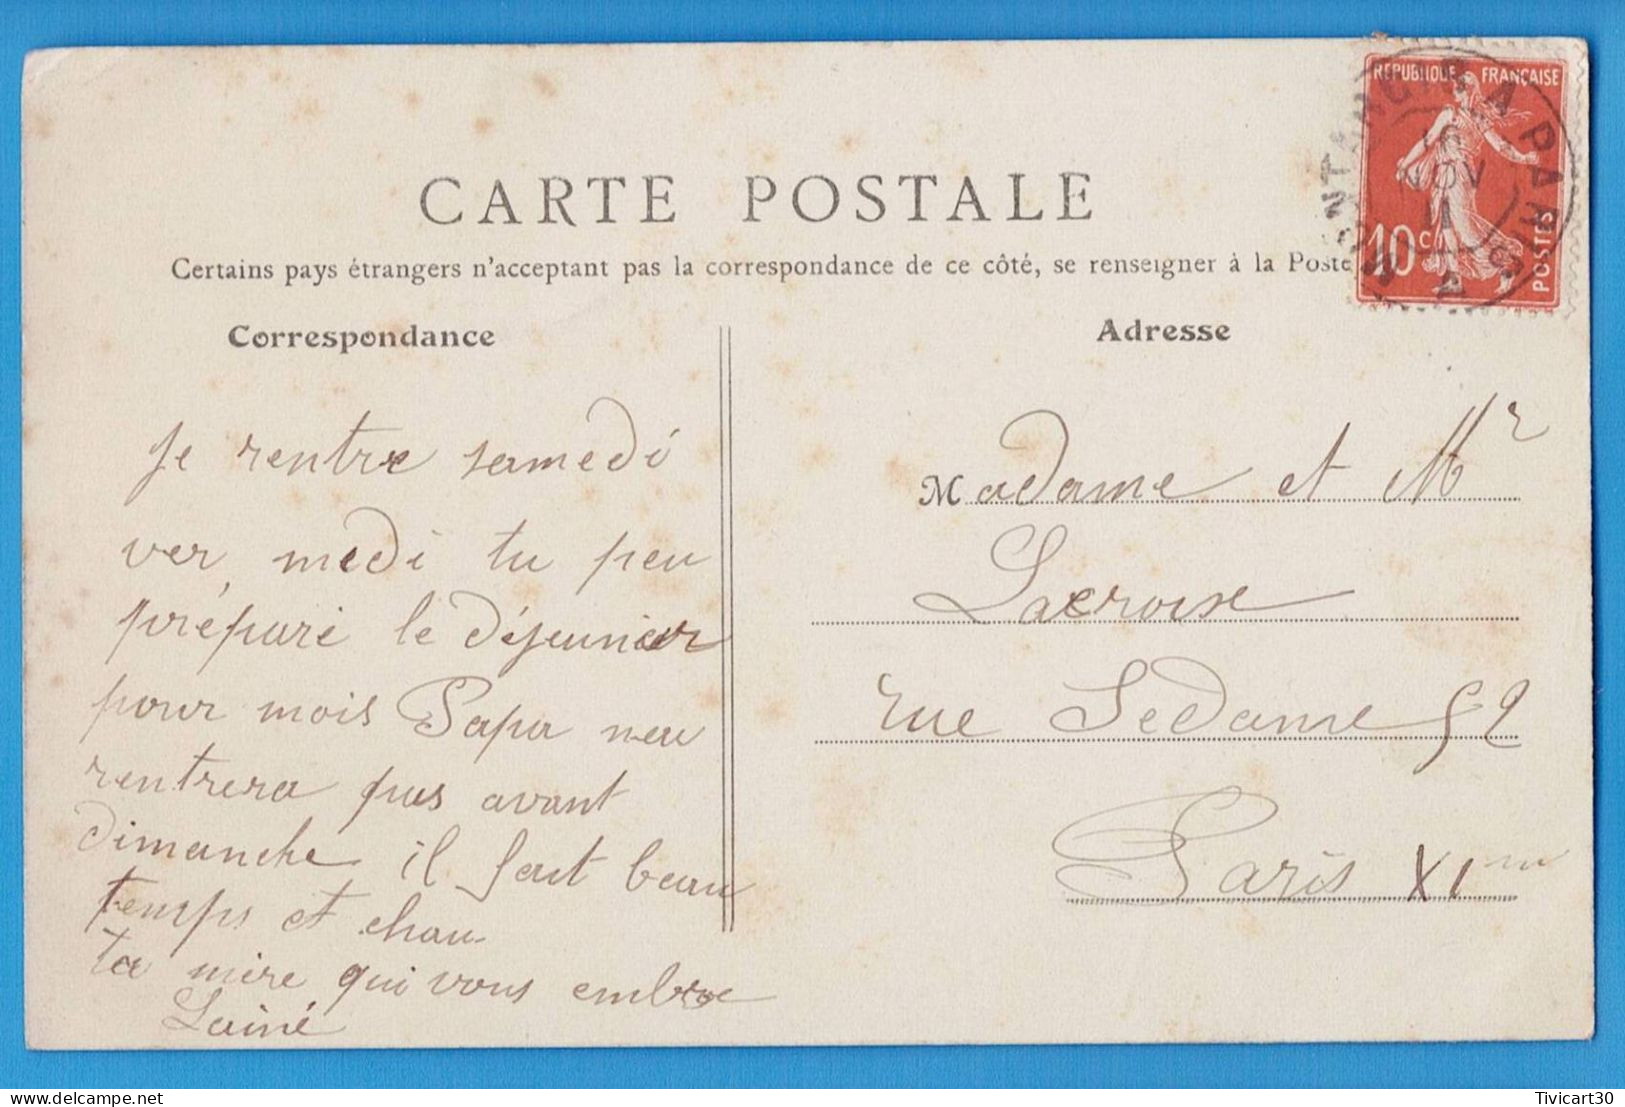 CARTE POSTALE
Certains pays étrangers n'acceptant pas la correspondance de ce côté, se renseigner à la Poste
Correspondance
Adresse
REPUBLIQUE FRANÇAISE
10c
POSTES
MONTARGIS A PARIS
16
NOV
11
Je rentre samedi
ver medi tu peu
préparé le déjeunier
pour mois Papa neu
rentrera pas avant
dimanche il fait beau
temps et chau
ta mère qui vous embrase
Lainé
Madame et Mr
Lacroix
rue Sedame 52
Paris XIme
Tivicart30